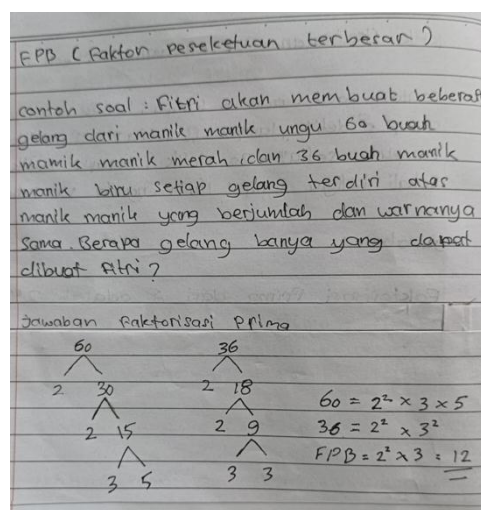 FPB (Faktor peseketuan terbesar)
contoh soal : Fitri akan membuat beberap
gelang dari manik manik ungu 60 buah
mamik manik merah, dan 36 buah manik
manik biru setiap gelang terdiri atas
manik manik yang berjumlah dan warnanya
sama. Berapa gelang banya yang dapat
dibuat fitri?
Jawaban faktorisasi prima
60 36
2 30 2 18
60 = 2² × 3 × 5
2 15 2 9
36 = 2² × 3²
3 5 3 3
FPB = 2² × 3 = 12